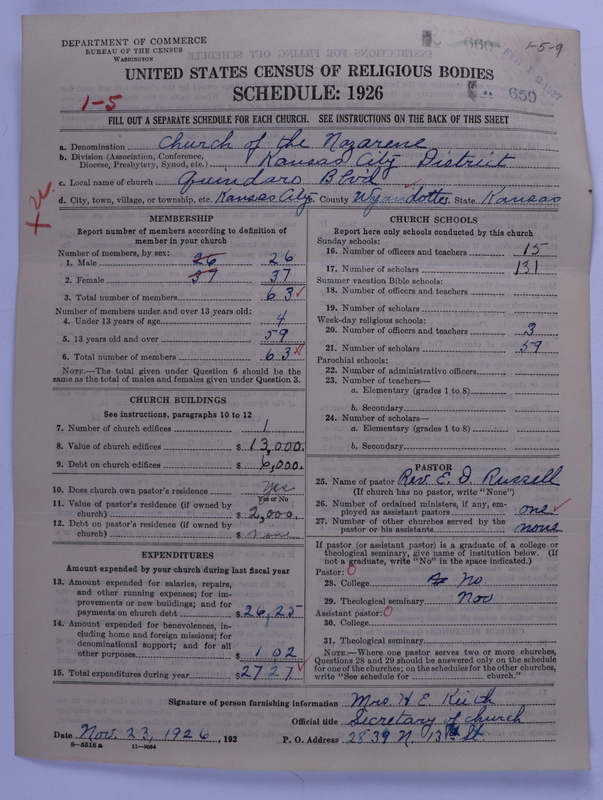 DEPARTMENT OF COMMERCE
BUREAU OF THE CENSUS
WASHINGTON
660
1-5-9
UNITED STATES CENSUS OF RELIGIOUS BODIES
SCHEDULE: 1926
659
1-5
FILL OUT A SEPARATE SCHEDULE FOR EACH CHURCH. SEE INSTRUCTIONS ON THE BACK OF THIS SHEET
a. Denomination Church of the Nazarene
b. Division (Association, Conference, Diocese, Presbytery, Synod, etc.) Kansas City District
c. Local name of church Quindaro Blvd
d. City, town, village, or township, etc. Kansas City. County Wyandotte. State Kansas
MEMBERSHIP
Report number of members according to definition of
member in your church
Number of members, by sex:
1. Male 26 26
2. Female 37 37
3. Total number of members 63
Number of members under and over 13 years old:
4. Under 13 years of age 4
5. 13 years old and over 59
6. Total number of members 63
NOTE.—The total given under Question 6 should be
same as the total of males and females given under Question 3.
CHURCH BUILDINGS
See instructions, paragraphs 10 to 12
7. Number of church edifices 1
8. Value of church edifices $ 13,000.
9. Debt on church edifices $ 6,000.
10. Does church own pastor's residence Yes
Yes or No
11. Value of pastor's residence (if owned by
church) $ 2,000.
12. Debt on pastor's residence (if owned by
church) $
EXPENDITURES
Amount expended by your church during last fiscal year
13. Amount expended for salaries, repairs,
and other running expenses; for im-
provements or new buildings; and for
payments on church debt $ 26,25
14. Amount expended for benevolences, in-
cluding home and foreign missions; for
denominational support; and for all
other purposes $ 102
15. Total expenditures during year $ 2727
CHURCH SCHOOLS
Report here only schools conducted by this church
Sunday schools:
16. Number of officers and teachers 15
17. Number of scholars 131
Summer vacation Bible schools:
18. Number of officers and teachers
19. Number of scholars
Week-day religious schools:
20. Number of officers and teachers 3
21. Number of scholars 59
Parochial schools:
22. Number of administrative officers
23. Number of teachers—
a. Elementary (grades 1 to 8)
b. Secondary
24. Number of scholars—
a. Elementary (grades 1 to 8)
b. Secondary
PASTOR
25. Name of pastor Rev. E. D. Russell
(If church has no pastor, write "None")
26. Number of ordained ministers, if any, em-
ployed as assistant pastors one
27. Number of other churches served by the
pastor or his assistants none
If pastor (or assistant pastor) is a graduate of a college or
theological seminary, give name of institution below. (If
not a graduate, write "No" in the space indicated.)
Pastor: 0
28. College No
29. Theological seminary Noo
Assistant pastor: 0
30. College
31. Theological seminary
NOTE.—Where one pastor serves two or more churches,
Questions 28 and 29 should be answered only on the schedule
for one of the churches; on the schedules for the other churches,
write "See schedule for church."
Signature of person furnishing information Mrs. H E. Keith
Official title Secretary of church
Date Nov. 23, 1926, 192
P. O. Address 2839 N. 13th St
8-5518 a 11-9034